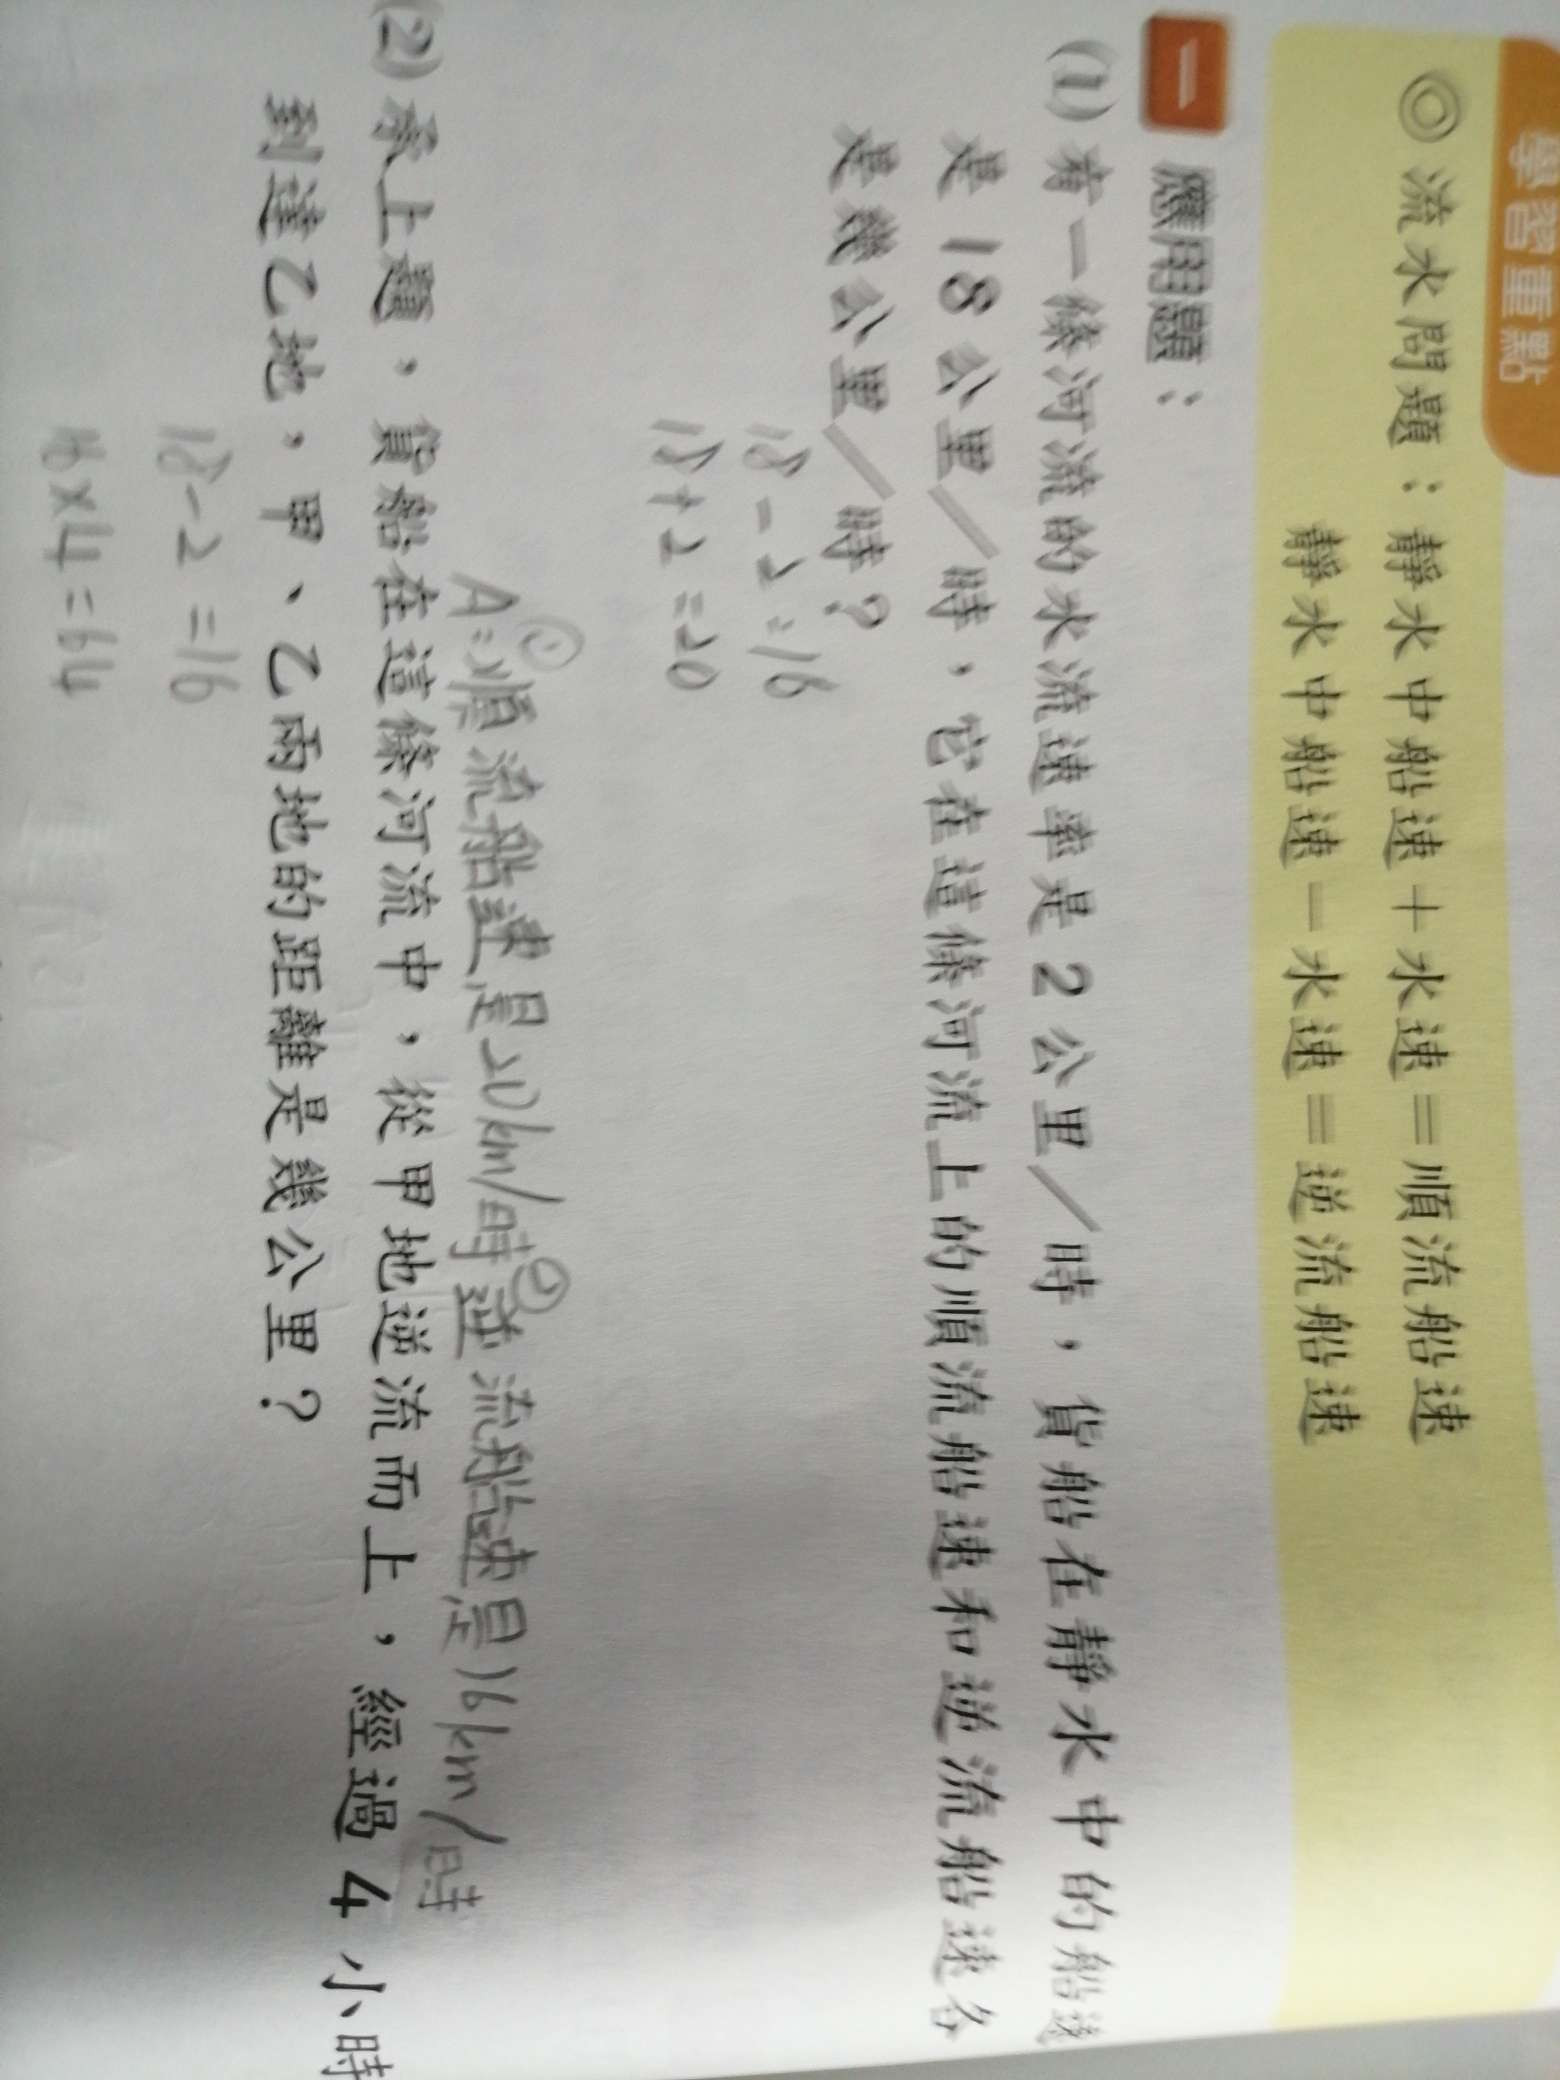 學習重點
◎流水問題：靜水中船速＋水速＝順流船速
靜水中船速－水速＝逆流船速
一 應用題：
(1) 有一條河流的水流速率是2公里／時，貨船在靜水中的船速
是18公里／時，它在這條河流上的順流船速和逆流船速各
是幾公里／時？
18-2=16
18+2=20
A:①順流船速是20km/時②逆流船速是16km/時
(2) 承上題，貨船在這條河流中，從甲地逆流而上，經過4小時
到達乙地，甲、乙兩地的距離是幾公里？
18-2=16
16×4=64